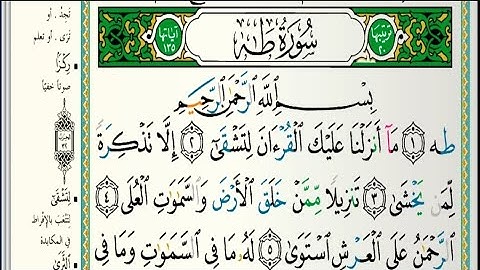 ترتيبها ٢٠
سُورَةُ طه
آياتها ١٣٥
بِسْمِ اللَّهِ الرَّحْمَٰنِ الرَّحِيمِ
طه ١ مَا أَنزَلْنَا عَلَيْكَ الْقُرْءَانَ لِتَشْقَىٰ ٢ إِلَّا تَذْكِرَةً
لِّمَن يَخْشَىٰ ٣ تَنزِيلًا مِّمَّنْ خَلَقَ الْأَرْضَ وَالسَّمَٰوَٰتِ الْعُلَى ٤
الرَّحْمَٰنُ عَلَى الْعَرْشِ اسْتَوَىٰ ٥ لَهُ مَا فِي السَّمَٰوَٰتِ وَمَا فِي
تجد . أو
ترى . أو تعلم
رِكْزًا
صوتاً خفيّاً
لِتَشْقَىٰ
لتتعب بالإفراط
في المكابدة
الثَّرَىٰ